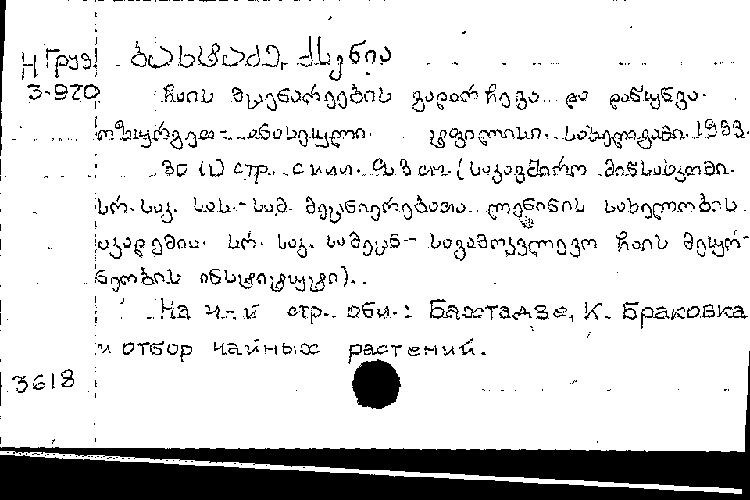 Н Груз. ბახტაძე, ქსენია
3-920 ჩაის მცენარეების გადარჩევა და დაწუნვა.
ოზურგეთ-ანასეული. ტფილისი. სახელგამი. 1933.
30 (1) стр. с илл. см. (საკავშირო მიწსახკომი.
სრ. საკ. სას.-სამ. მეცნიერებათა ლენინის სახელობის
აკადემია. სრ. საკ. სამეცნ-საკვლევო ჩაის მეურ-
ნეობის ინსტიტუტი).
На 4-й стр. обл.: Бахтадзе, К. Браковка
и отбор чайных растений.
3618